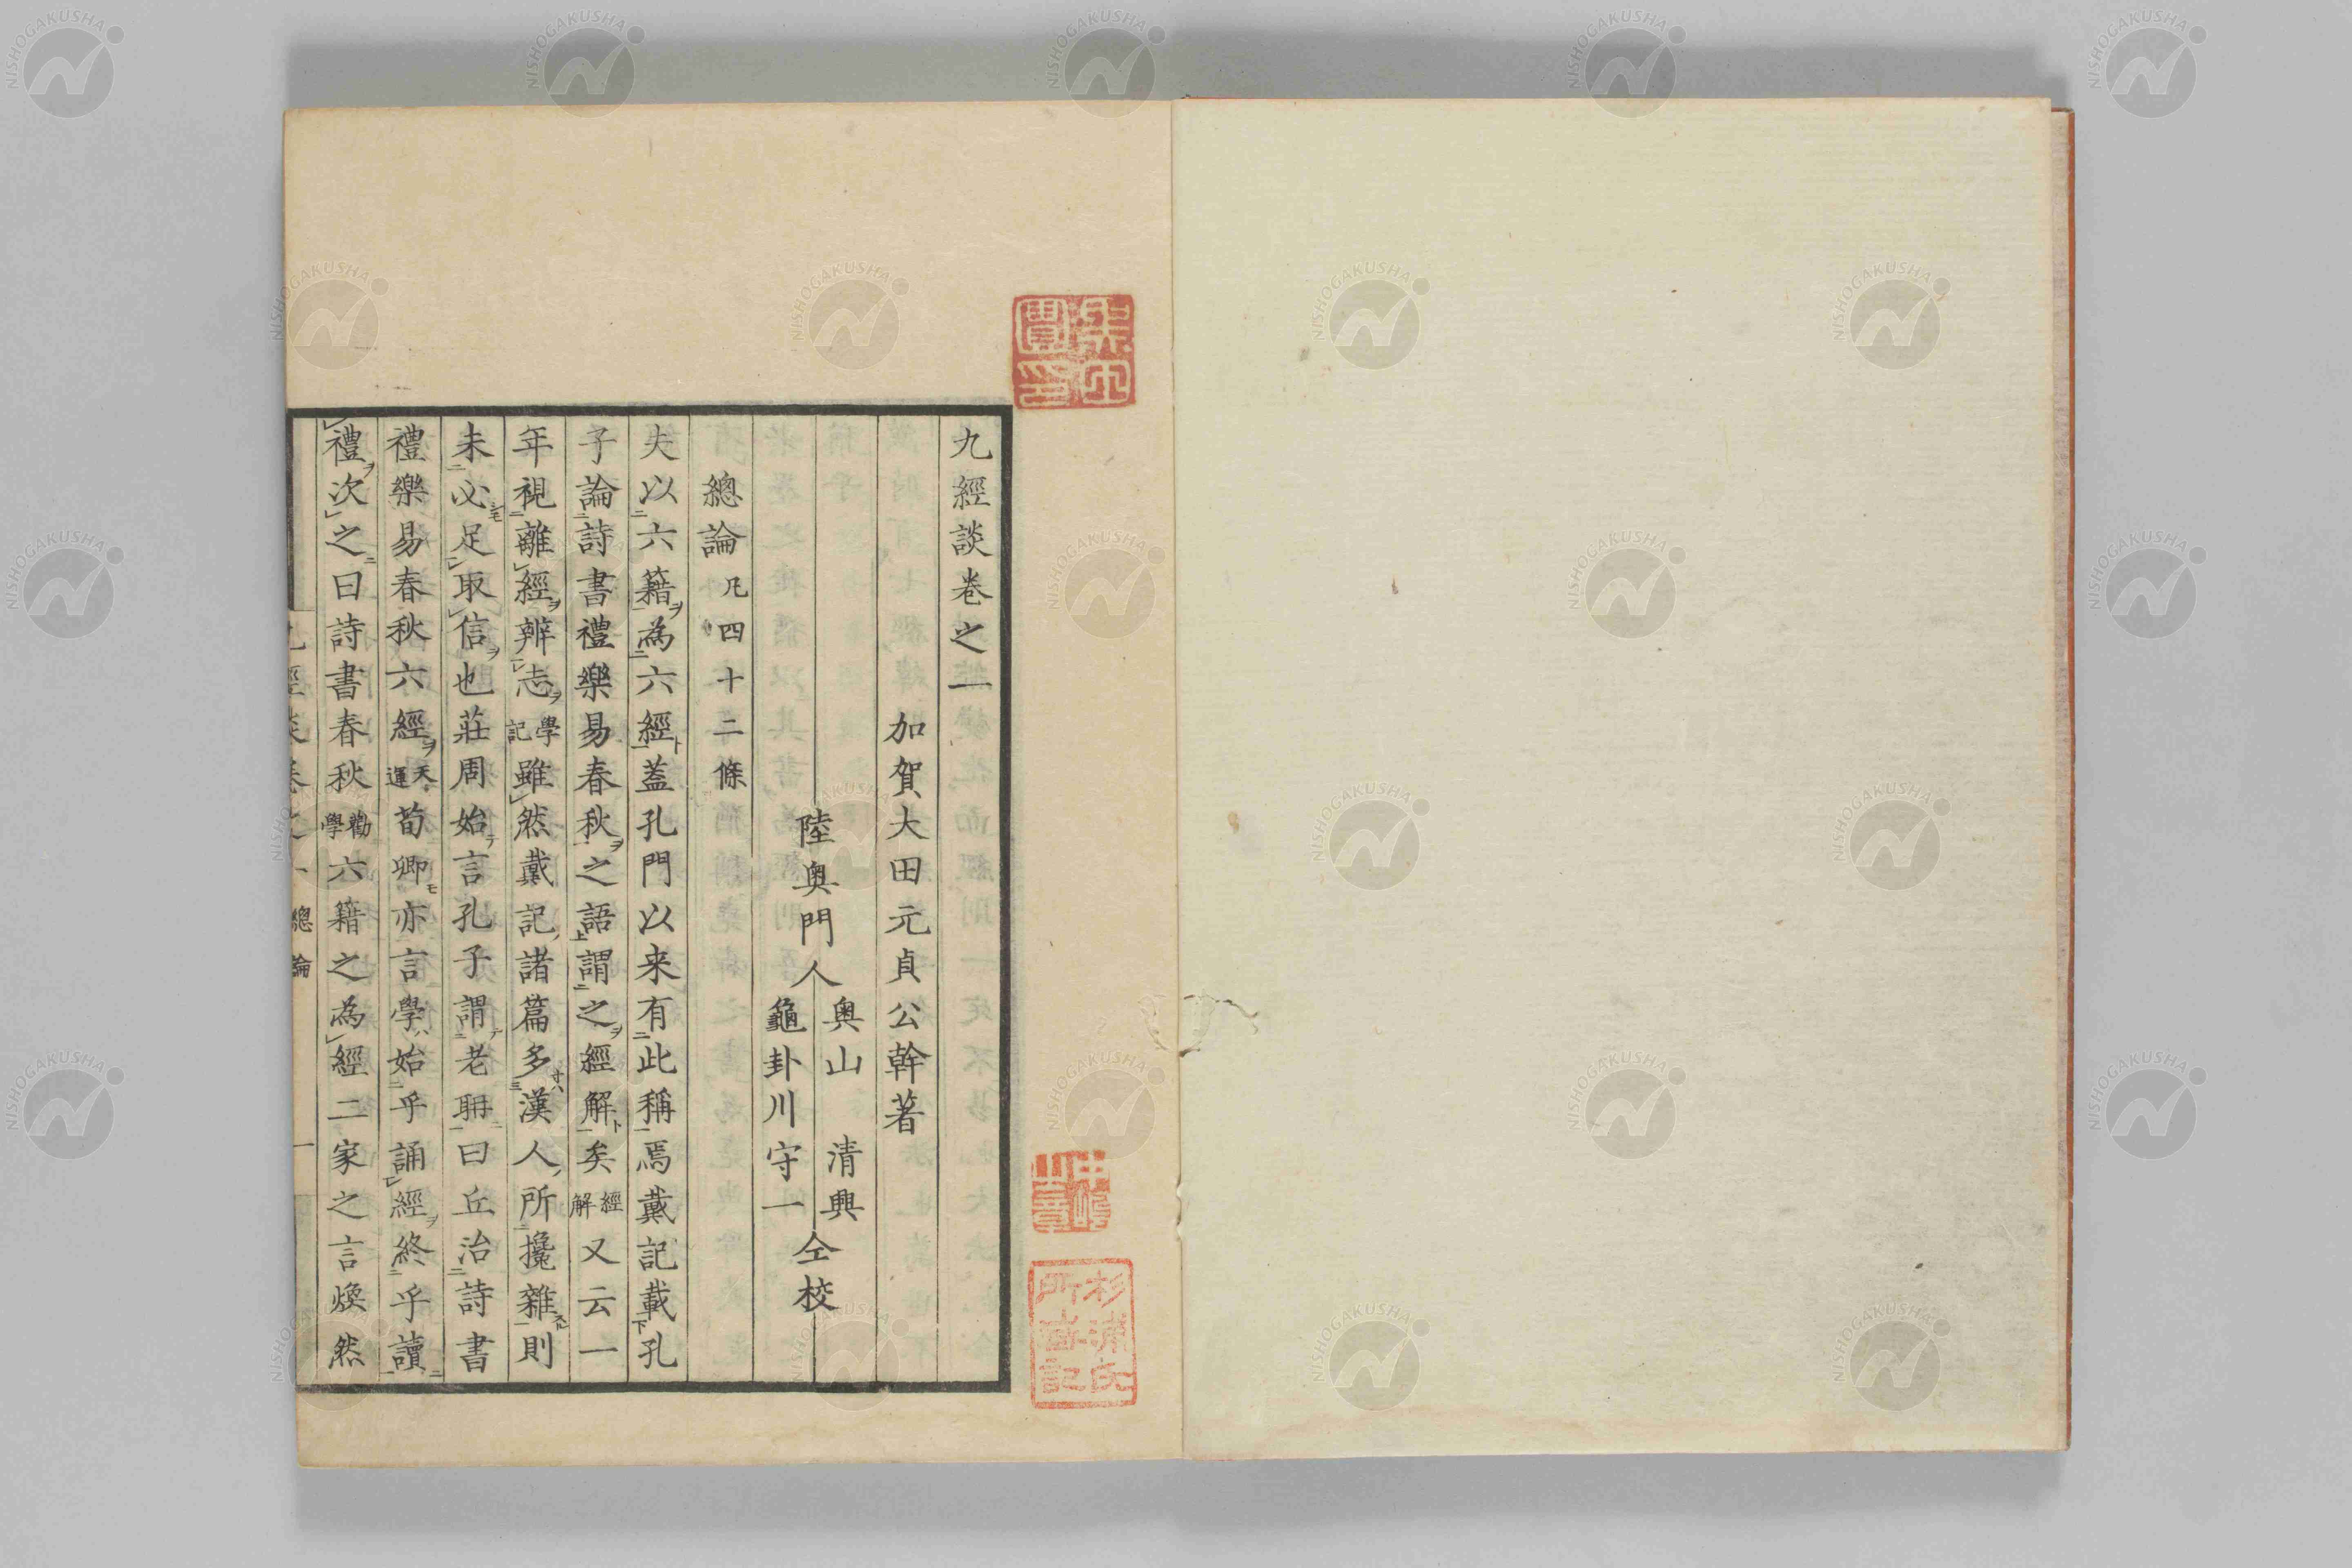 九經談卷之一
加賀大田元貞公幹著
陸奥門人
奥山 清興
龜卦川守一
仝校
總論 凡四十二條
夫以六籍為六經蓋孔門以来有此稱焉戴記載孔
子論詩書禮樂易春秋之語謂之經解矣 經解 又云一
年視離經辨志 學記 雖然戴記諸篇多漢人所攙雜則
未必足取信也莊周始言孔子謂老聃曰丘治詩書
禮樂易春秋六經 天運 荀卿亦言學始乎誦經終乎讀
禮次之曰詩書春秋 勸學 六籍之為經二家之言煥然
九經談卷之一 總論 一
杉浦氏
所蔵記
NISHOGAKUSHA